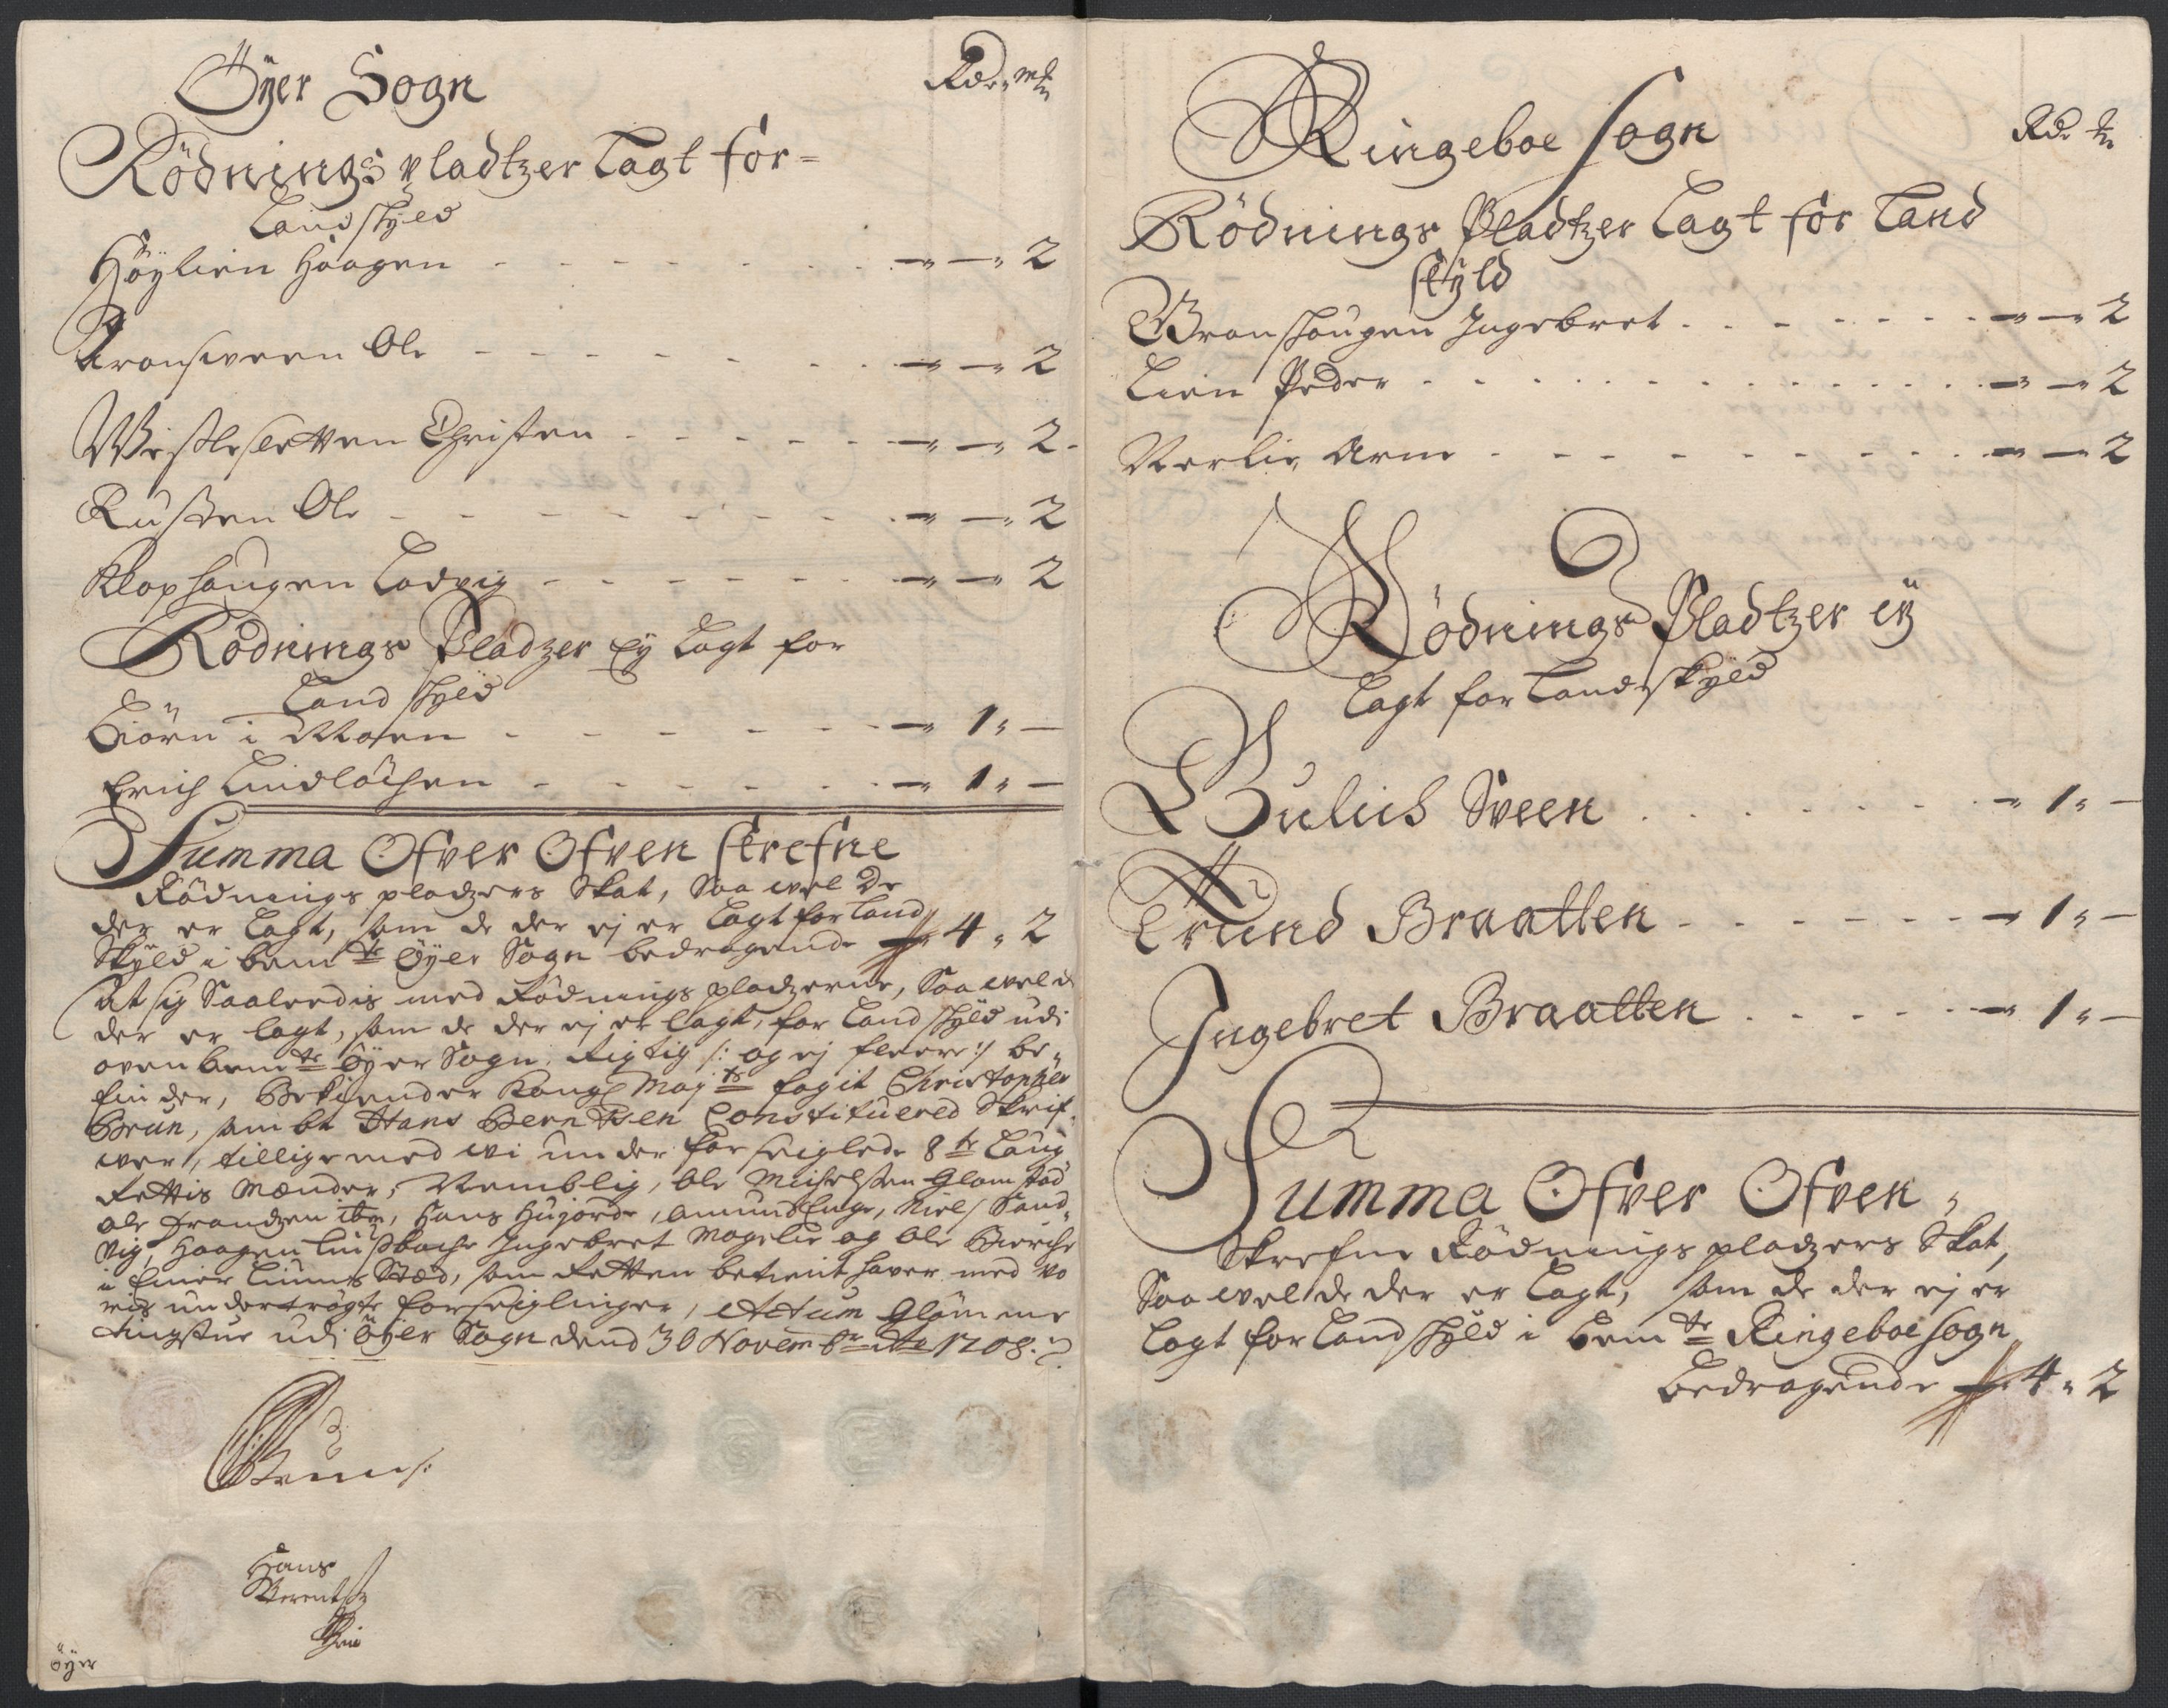 Öÿer Sogn
Rdr. mk
Rödnings pladtzer Lagt for=
Landskyld
Höÿlien Haagen - - - - 2
Kronsveen Ole - - - - 2
Wesleseetten Christen - - - - 2
Rusten Ole - - - - 2
Klophaugen Lodvig - - - - 2
Rödnings Pladzer Eÿ Lagt for
Land skÿld
Biörn i Moen - - - - 1 " -
Erich Lindlöchen - - - - 1 " -
Summa Ofver Ofven skrefne
Rödnings pladzers Skat, Saa well De
der er Lagt, som de der ej er Lagt for Land
Skÿld i bemte Öÿer Sogn bedragende 4 " 2
At sig Saaleedis med Rödnings pladzerne, Saa well de
der er lagt, som de der ej er lagt, for Land skÿld udi
ovenbemte Öÿer Sogn. Rigtig /: og ej fleere :/ be„
finder, Bekiender Kongl Majts fogit Christopher
Brun, samt Hans Berntsen Constituered Skrif„
wer, tillige med wi under forseiglede 8te Laug
Rettis Mænder, Nemblig, Ole Michelsen Glomstad
Ole Frandzen ibm, Hans Hujorde, Amund Enge, Niels Sand„
vig, Haagen Luusbache Ingebret Mageli og Ole Bierche
i Einer Lunns Stæd, som Retten betient haver med vo
ris undertrögte forseiglinger, Actum Glömme
tingstue udi Öÿer Sogn dend 30 Novembr Ao 1708.
CBruun:
Hans
Berentsen
Öÿer
Ringeboe sogn
Rdr
Rödnings Pladtzer Lagt for Land
skÿld
Bronshougen Ingebret - - - - 2
Lien Peder - - - - 2
Nerlie Arne - - - - 2
Rödnings Pladtzer eÿ
Lagt for Landskÿld
Gulich Sveen - - - - 1 " -
Trund Braatten - - - - 1 " -
Ingebret Braatten - - - - 1 " -
Summa Ofver Ofven„
Skrefne Rödnings pladzers Skat,
Saa well de der er Lagt, som de der ej er
Lagt for Landskÿld i bemte Ringeboe sogn
bedragende 4 " 2